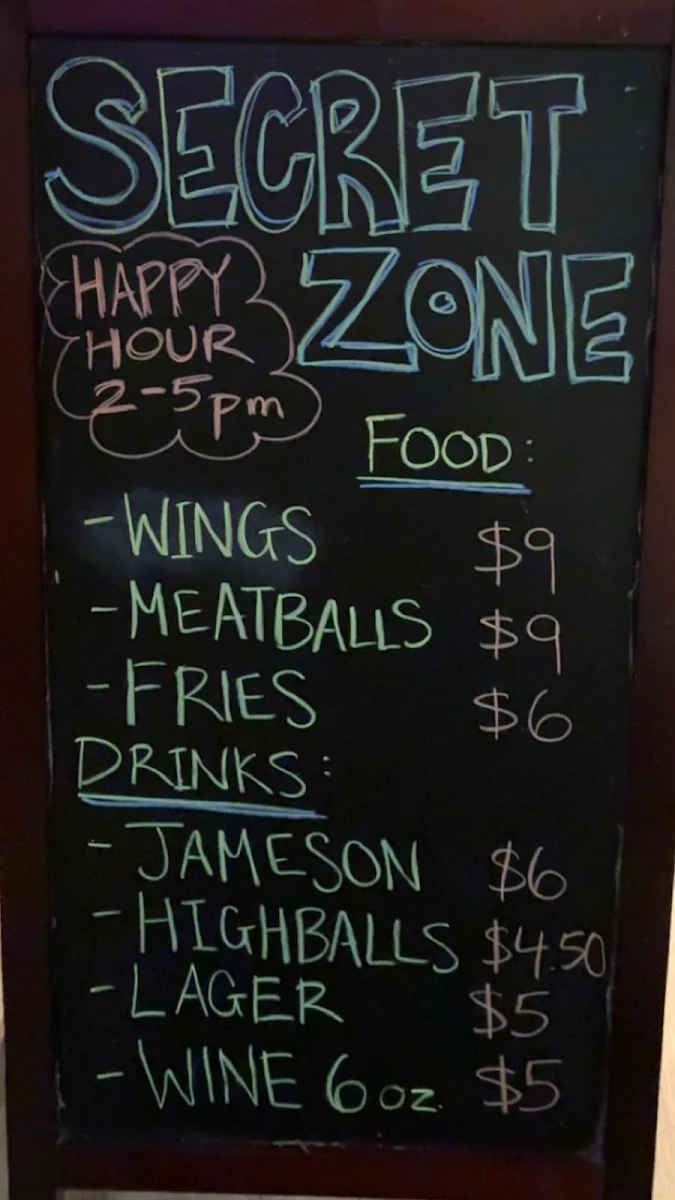 SECRET
ZONE
HAPPY
HOUR
2-5pm
FOOD:
-WINGS $9
-MEATBALLS $9
-FRIES $6
DRINKS:
- JAMESON $6
- HIGHBALLS $4.50
- LAGER $5
- WINE 6oz. $5